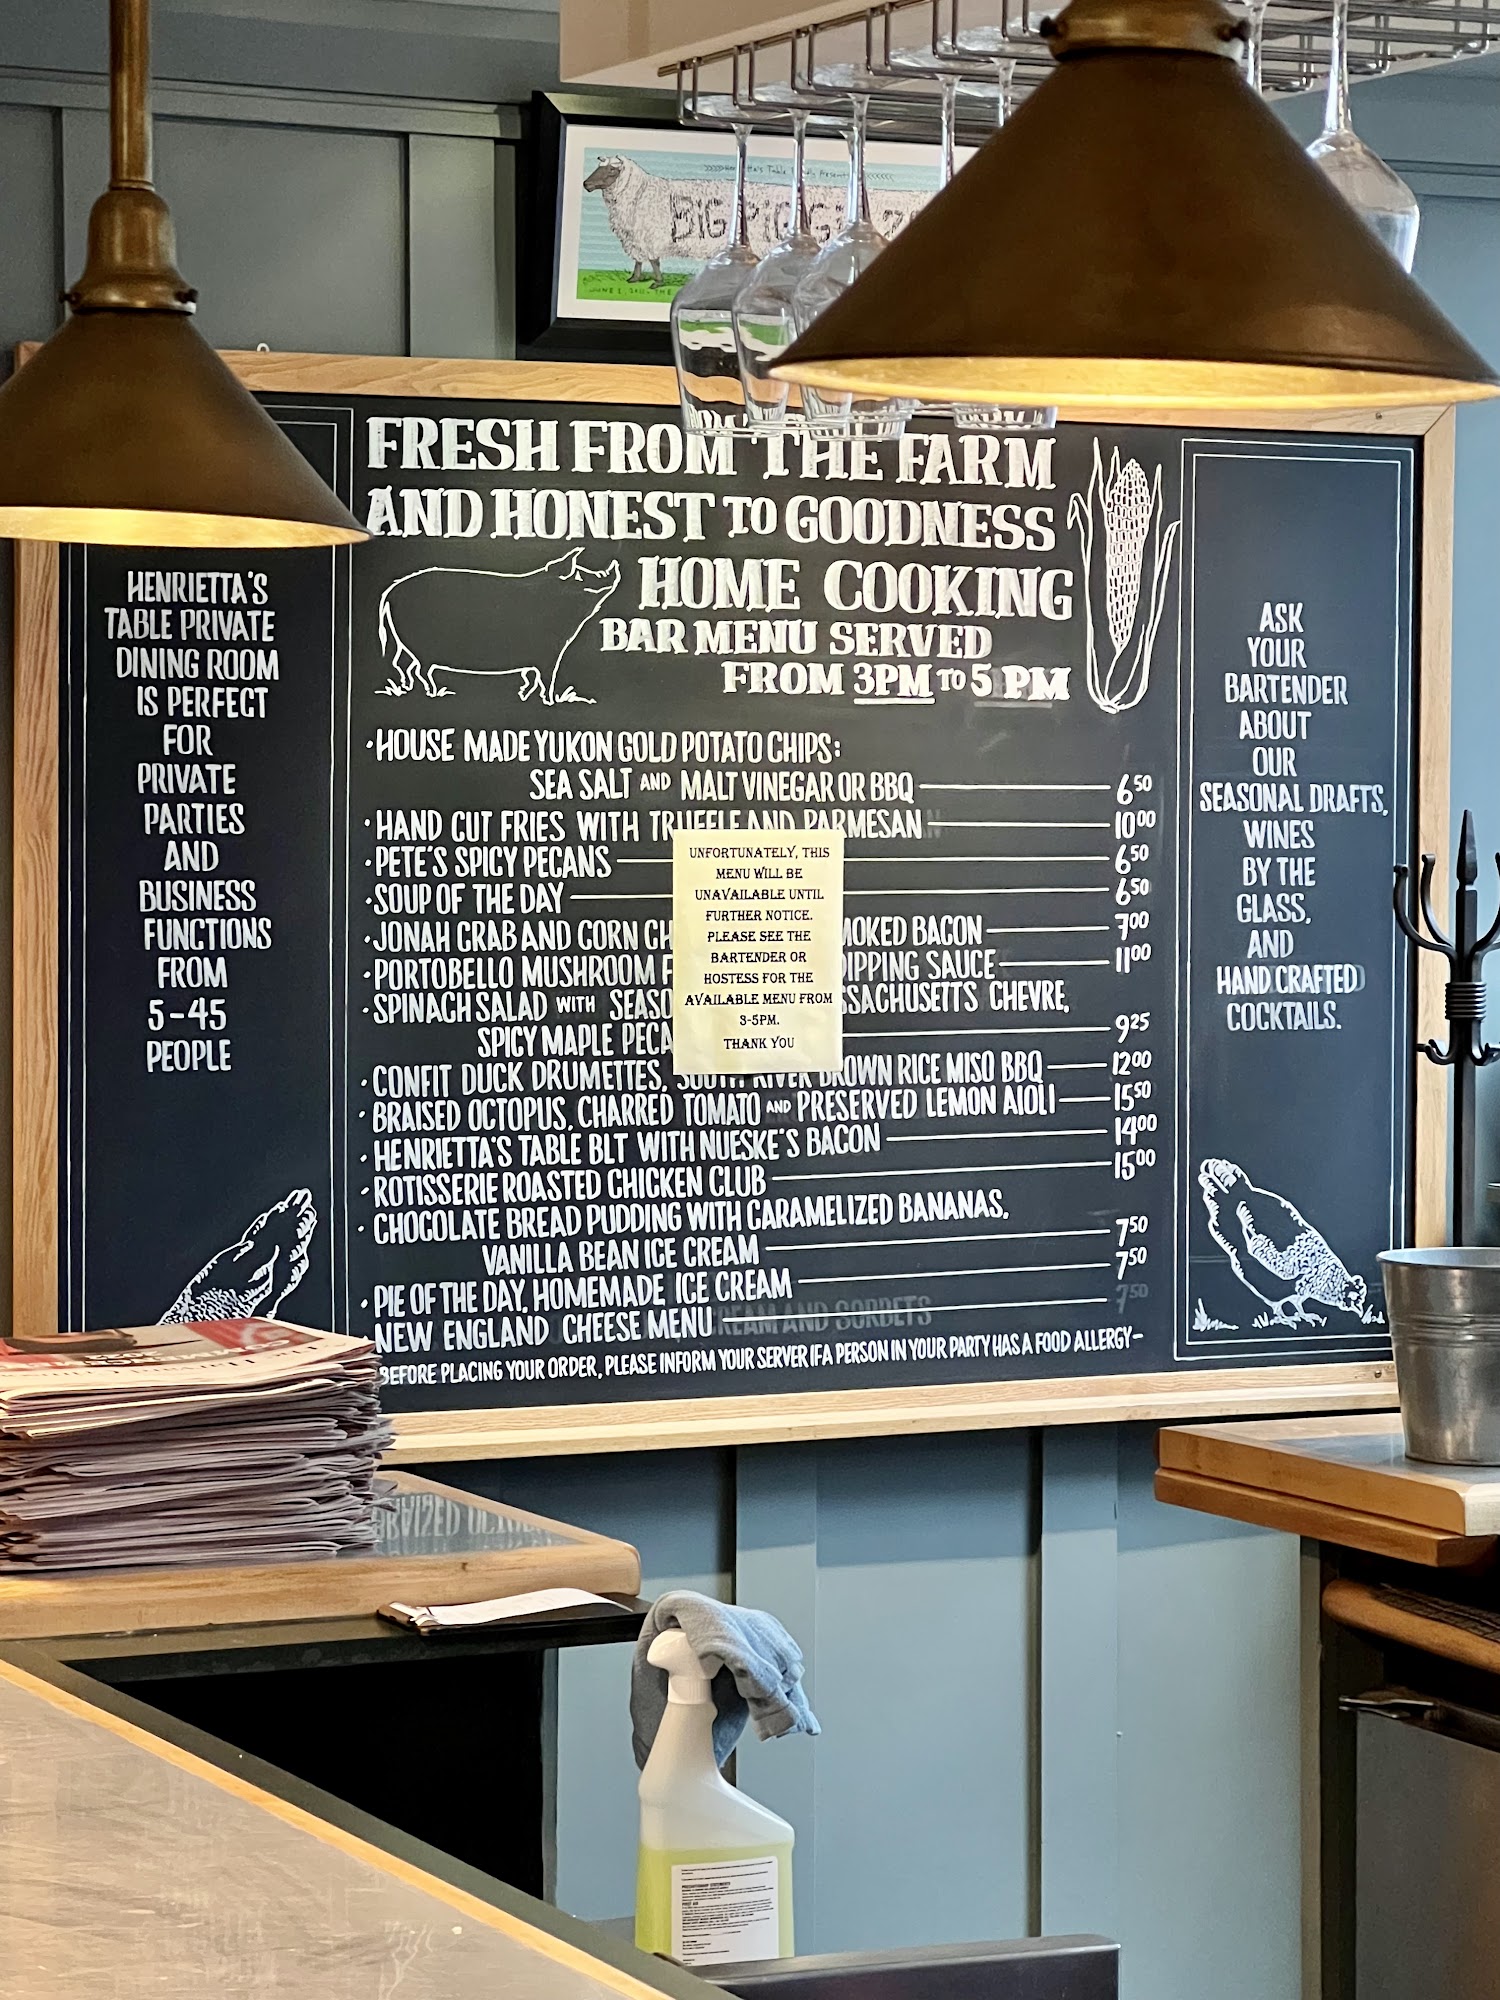 BIG PIG GIG
HENRIETTA'S
TABLE PRIVATE
DINING ROOM
IS PERFECT
FOR
PRIVATE
PARTIES
AND
BUSINESS
FUNCTIONS
FROM
5-45
PEOPLE
FRESH FROM THE FARM
AND HONEST TO GOODNESS
HOME COOKING
BAR MENU SERVED
FROM 3PM TO 5 PM
·HOUSE MADE YUKON GOLD POTATO CHIPS:
SEA SALT AND MALT VINEGAR OR BBQ 6 50
·HAND CUT FRIES WITH TRUFFLE AND PARMESAN 10 00
·PETE'S SPICY PECANS 6 50
·SOUP OF THE DAY 6 50
·JONAH CRAB AND CORN CH MOKED BACON 7 00
·PORTOBELLO MUSHROOM F DIPPING SAUCE 11 00
·SPINACH SALAD WITH SEASO SSACHUSETTS CHEVRE,
SPICY MAPLE PECA 9 25
·CONFIT DUCK DRUMETTES, SOUTH RIVER BROWN RICE MISO BBQ 12 00
·BRAISED OCTOPUS, CHARRED TOMATO AND PRESERVED LEMON AIOLI 15 50
·HENRIETTA'S TABLE BLT WITH NUESKE'S BACON 14 00
·ROTISSERIE ROASTED CHICKEN CLUB 15 00
·CHOCOLATE BREAD PUDDING WITH CARAMELIZED BANANAS,
VANILLA BEAN ICE CREAM 7 50
·PIE OF THE DAY, HOMEMADE ICE CREAM 7 50
·NEW ENGLAND CHEESE MENU 7 50
BEFORE PLACING YOUR ORDER, PLEASE INFORM YOUR SERVER IF A PERSON IN YOUR PARTY HAS A FOOD ALLERGY-
UNFORTUNATELY, THIS
MENU WILL BE
UNAVAILABLE UNTIL
FURTHER NOTICE.
PLEASE SEE THE
BARTENDER OR
HOSTESS FOR THE
AVAILABLE MENU FROM
3-5PM.
THANK YOU
ASK
YOUR
BARTENDER
ABOUT
OUR
SEASONAL DRAFTS,
WINES
BY THE
GLASS,
AND
HAND CRAFTED
COCKTAILS.